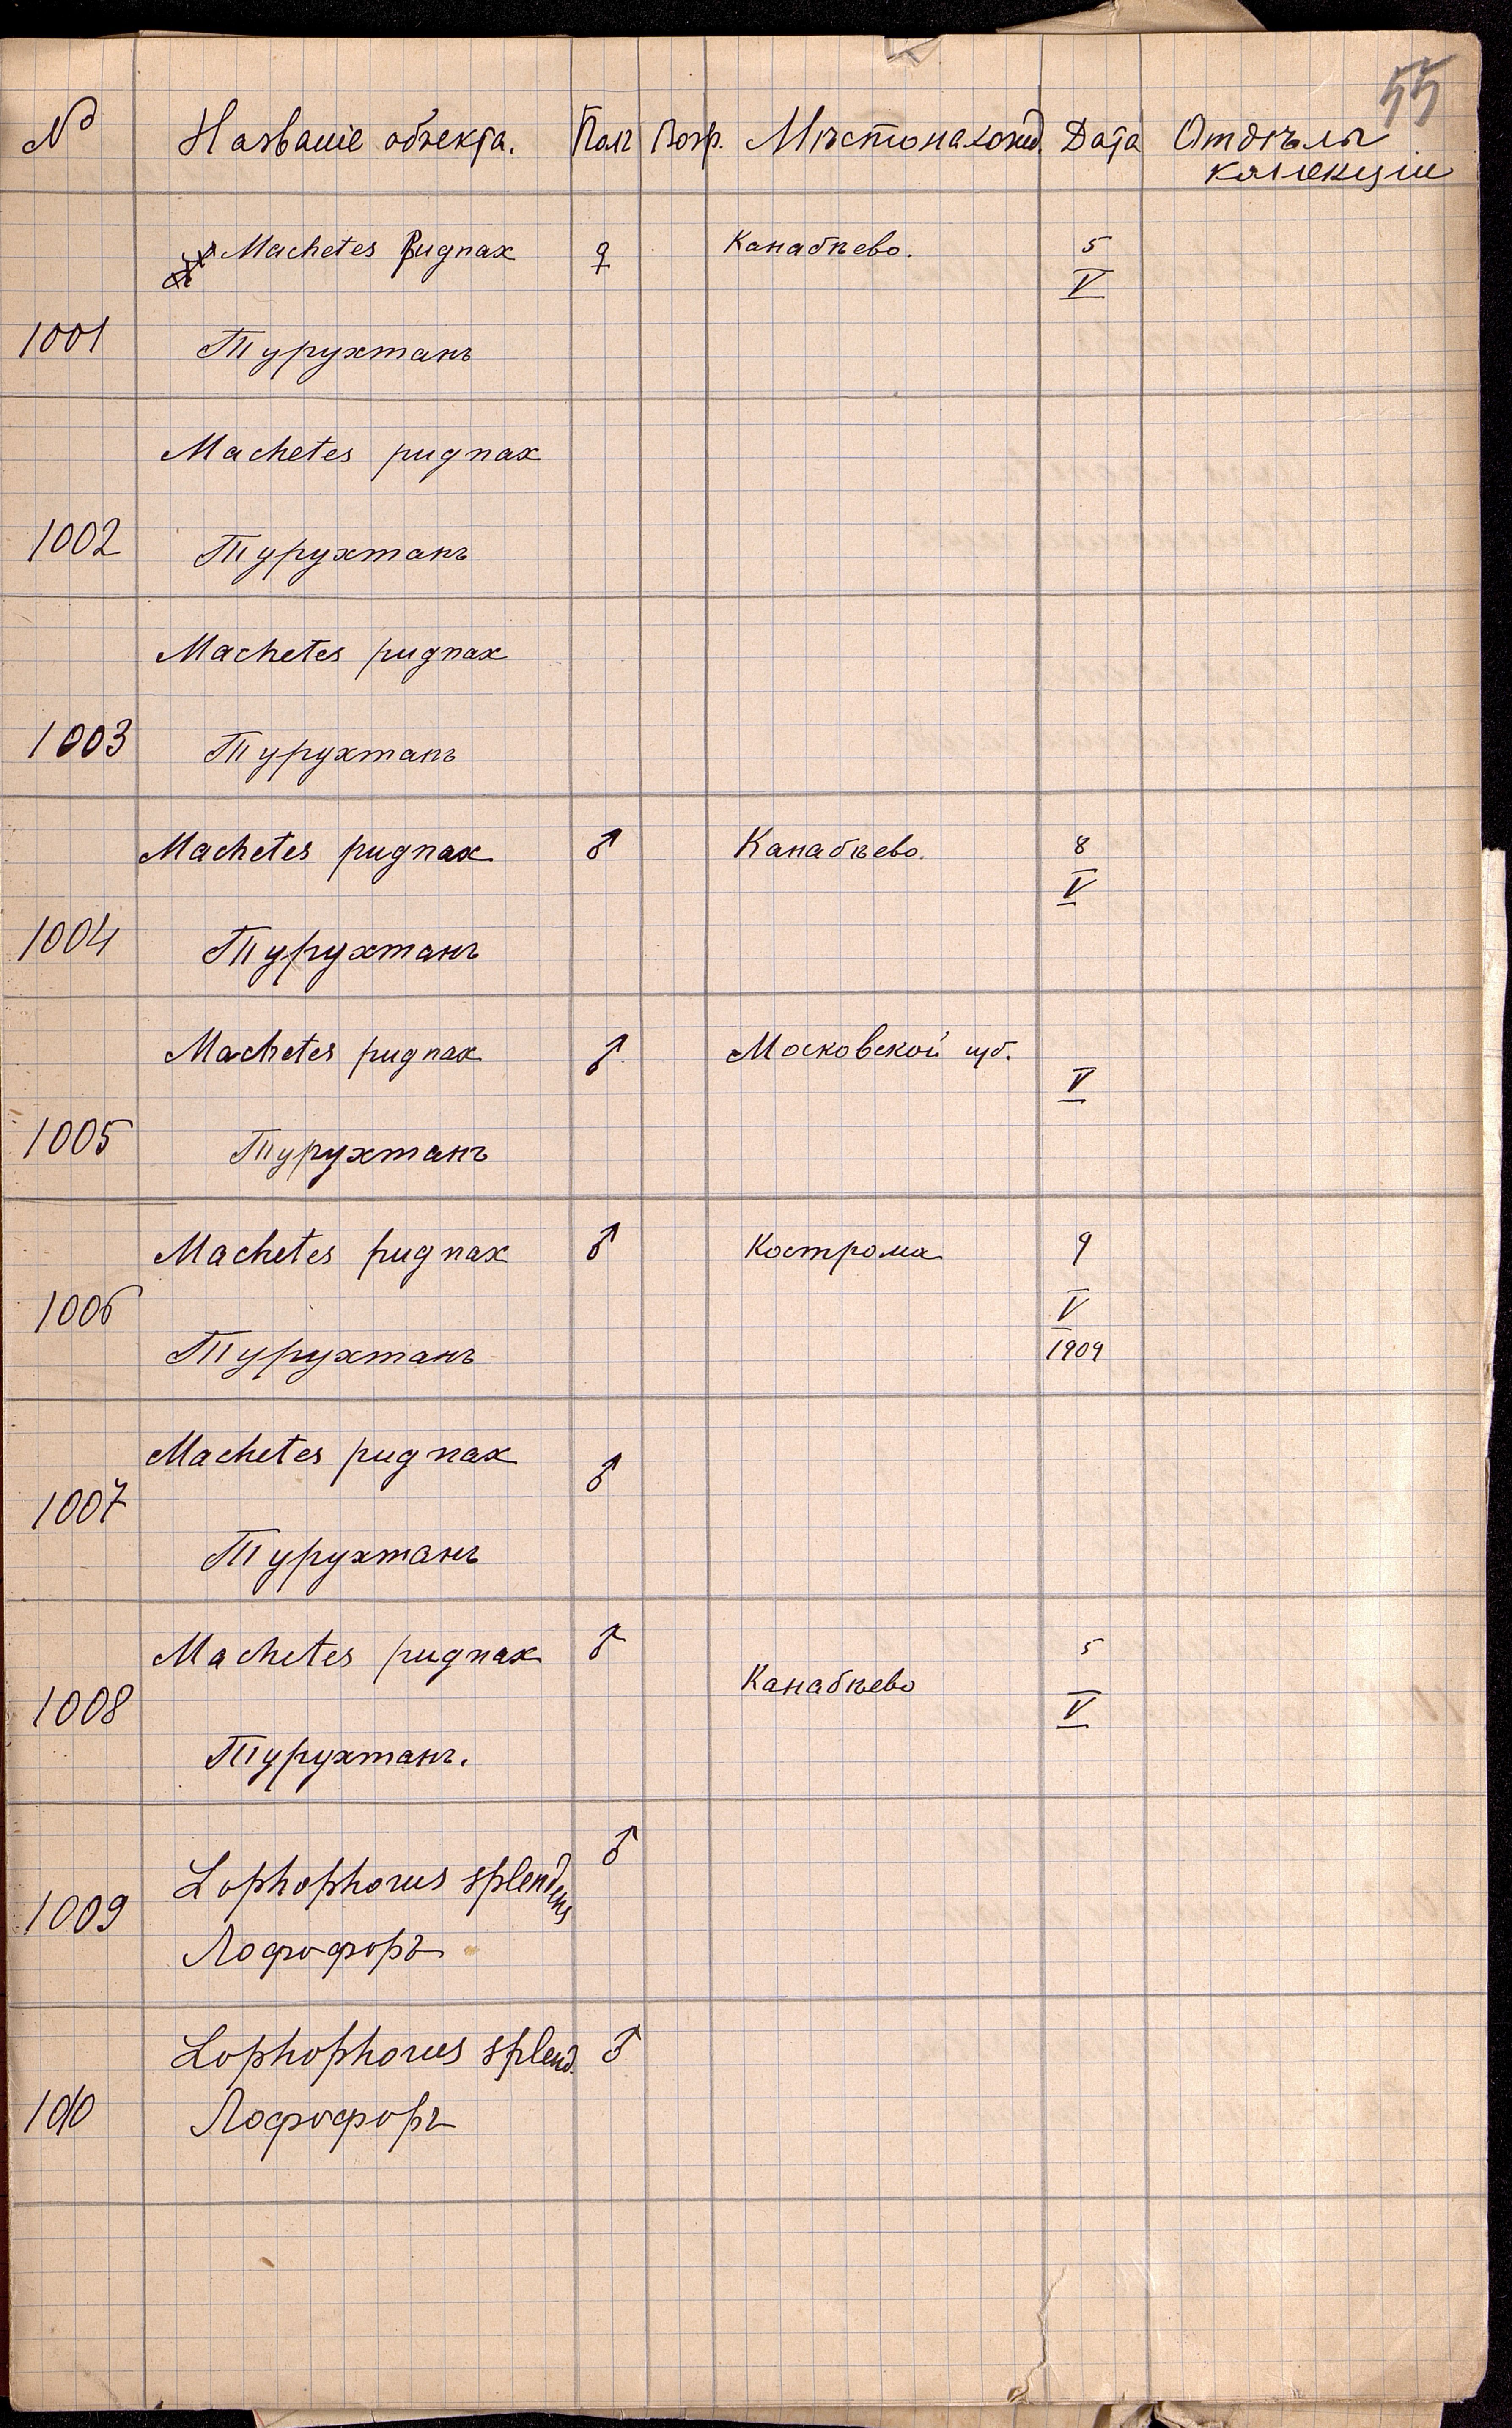 55
№ Названіе объекта. Полъ Возр. Мѣстонахожд. Дата Отдѣлъ
коллекціи
Machetes Pugnax ♀ Канабѣево. 5
V
1001 Турухтанъ
Machetes pugnax
1002 Турухтанъ
Machetes pugnax
1003 Турухтанъ
Machetes pugnax ♂ Канабѣево. 8
V
1004 Турухтанъ
Machetes pugnax ♂ Московской губ.
V
1005 Турухтанъ
Machetes pugnax ♂ Кострома 9
1006 V
Турухтанъ 1909
Machetes pugnax ♂
1007
Турухтанъ
Machetes pugnax ♂ 5
Канабѣево
1008 V
Турухтанъ.
♂
Lophophorus splendens
1009
Лофофоръ
Lophophorus splend. ♂
1010 Лофофоръ